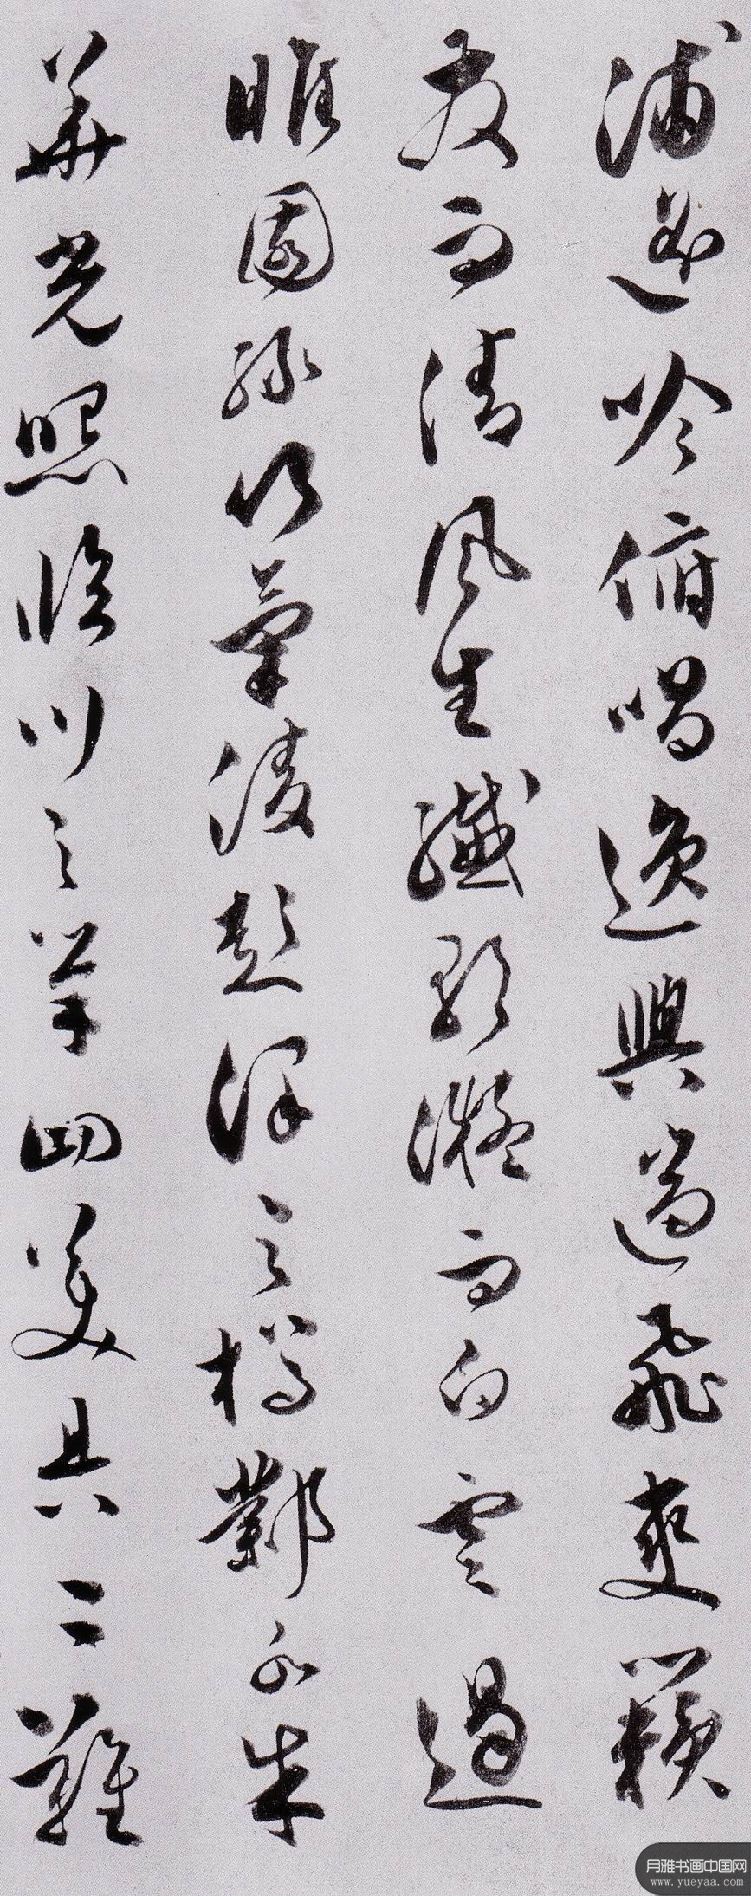 浦遥吟俯唱逸興遄飛爽籟
發而清風生纖歌凝而白雲遏
睢園緑竹氣淩彭澤之樽鄴水朱
華光照臨川之筆四美具二難
月雅书画中国网
www.yueyaa.com